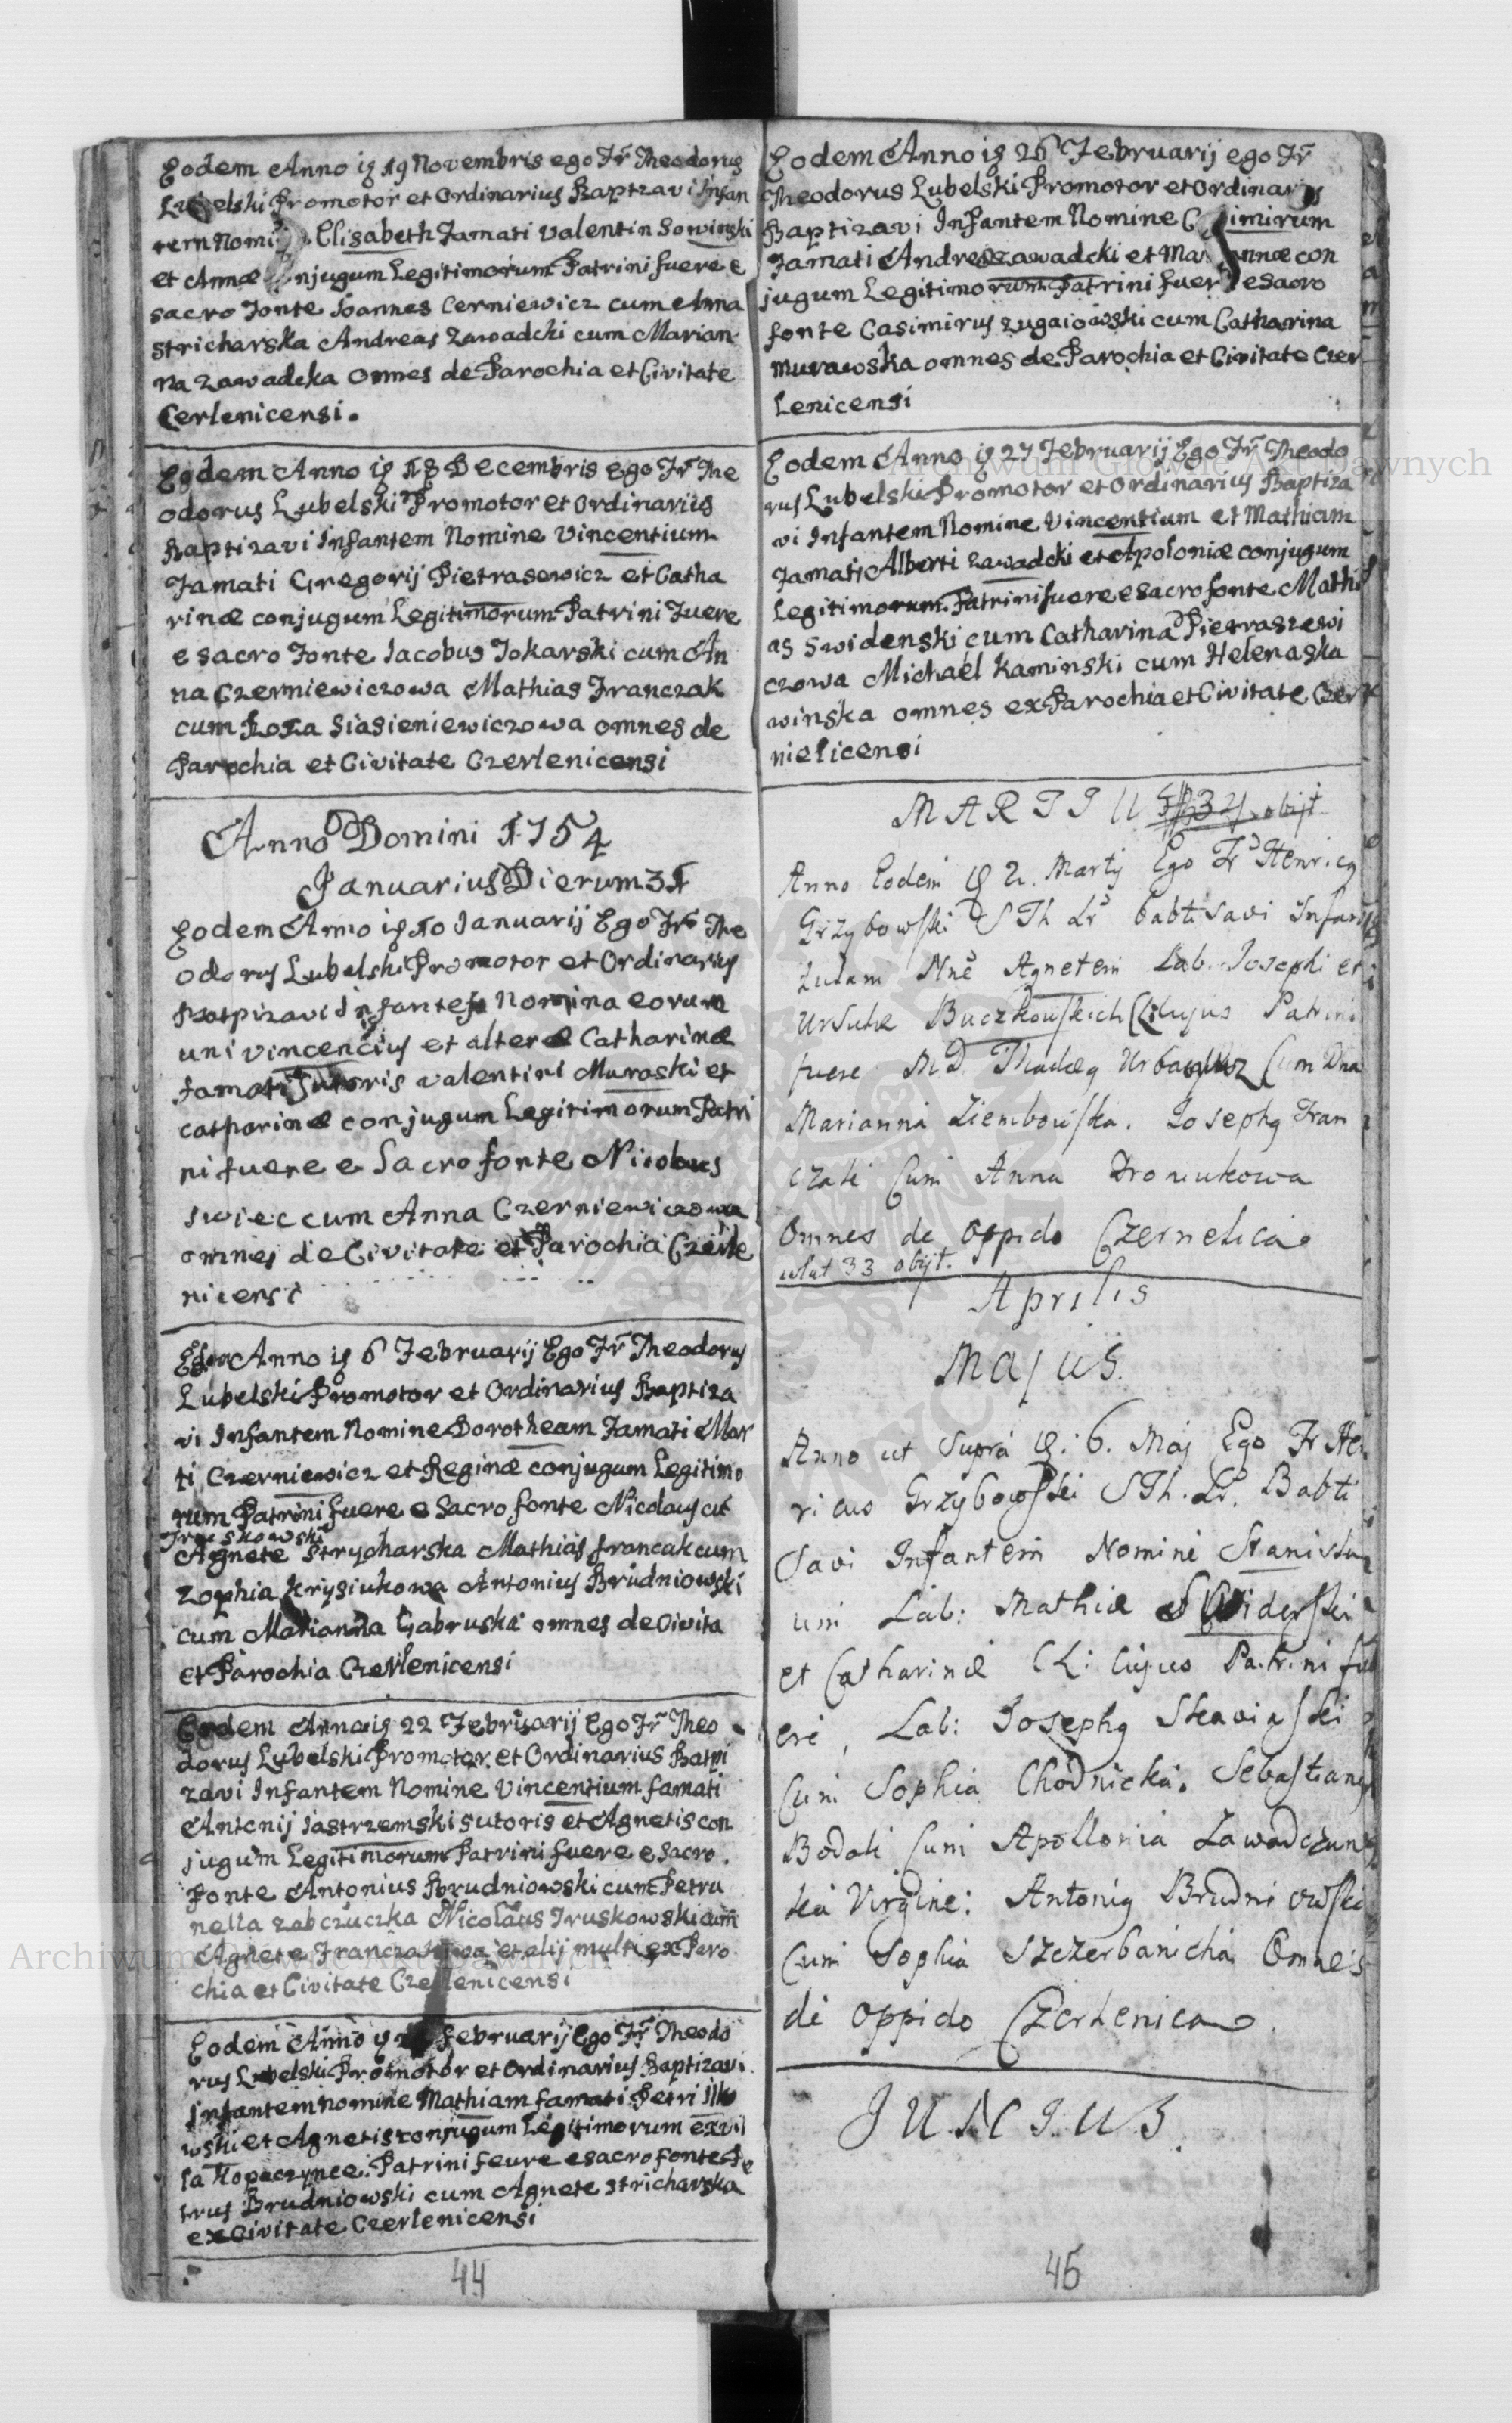 Eodem Anno iɋ 19 Novembris ego Fr̃ Theodorus
Lubelski Promotor et Ordinarius Baptzavi Infan
tem Elisabeth Famati Valentin Sowinski
et Annæ njugum Legitimorum Patrini fuere e
sacro Fonte Ioannes Cerniewicz cum Anna
Stricharska Andreas Zawadcki cum Marian
na Zawadcka Omnes de Parochia et Civitate
Cerlenicensi.
Eodem Anno iɋ 18 Decembris ego Fr̃ The
odorus Lubelski Promotor et Ordinarius
Baptizavi Infantem Nomine Vincentium
Famati Gregorij Pietrasewicz et Catha
rinæ conjugum Legitimorum Patrini Fuere
e sacro Fonte Iacobus Tokarski cum An
na Czerniewiczowa Mathias Franczak
cum Roza Siasieniewiczowa omnes de
Parochia et Civitate Czerlenicensi
Anno Domini 1754
Januarius Dierum 31
Eodem Anno iɋ 10 Ianuarij Ego Fr̃ The
odorus Lubelski Promotor et Ordinarius
Batpizavi Infantes Nomina eorum
uni Vincencius et alteræ Catharinæ
Famati Sutoris Valentini Muraski et
Catharinæ conjugum Legitimorum Patri
ni fuere e Sacro fonte Nicolaus
Swiec cum Anna Czerniewiczowa
omnes de Civitate et Parochia Czerle
nicensi
Anno iɋ 6 Februarij Ego Fr̃ Theodorus
Lubelski Promotor et Ordinarius Baptiza
vi Infantem Nomine Dorotheam Famati Mar
ti Czerniewicz et Reginæ conjugum Legitimo
rum Patrini fuere e Sacro fonte Nicolaus
Truskowski
Agnete Strycharska Mathias francak cum
Zophia Krysiukowa Antonius Brudniowski
cum Marianna Gabruska omnes de Civita
et Parochia Czerlenicensi
Eodem Anno iɋ 22 Februarij Ego Fr̃ Theo
dorus Lubelski Promotor et Ordinarius Batpi
zavi Infantem Nomine Vincentium famati
Antonij Jastrzemski sutoris et Agnetis con
jugum Legitimorum Patrini fuere e Sacro
Fonte Antonius Brudniowski cum Petru
nella Zabczuczka Nicolaus Truskowski cum
Agnete et alij multi ex Paro
chia et Civitate Czerlenicensi
Eodem Anno iɋ Februarij Ego Fr̃ Theodo
rus Lubelski Promotor et Ordinarius Baptizavi
Infantem nomine Mathiam famati Petri Ilko
wski et Agnetis conjugum Legitimorum ex vil
la Kopaczynce Patrini feure e sacro fonte Pe
trus Brudniowski cum Agnete Stricharska
ex Civitate Czerlenicensi
44
Eodem Anno iɋ 26 Februarij ego Fr̃
Theodorus Lubelski Promotor et Ordinarius
Baptizavi Infantem Nomine imirum
Famati Andreæ Zawadcki et annæ con
jugum Legitimorum Patrini fuere e Sacro
fonte Casimirus cum Catharina
Murawska omnes de Parochia et Civitate Czer
Lenicensi
Eodem Anno iɋ 27 Februarij Ego Fr̃ Theodo
rus Lubelski Promotor et Ordinarius Baptiza
vi Infantem Nomine Vincentium et Mathiam
Famati Alberti Zawadcki et Apoloniæ conjugum
Legitimorum Patrini fuere e sacro fonte Mathi
as Swidenski cum Catharina Pietraszewi
czowa Michael Kaminski cum Helena Ska
winska omnes ex Parochia et Civitate Czer
nielicensi
MARTIU
Anno Eodem ɋ 2. Martij Ego Fr Henricɋ
Grzybowski S Th Lr babtisavi Infan
tulam Nñe Agnetem Lab. Josephi et
Ursulæ Buczkowskich CL cujus Patrini
fuere MD. Thadæɋ cum Dna
Marianna Ziembowska. Josephɋ Fran
czak Cum Anna
Omnes de Oppido Czernelica
33 obijt.
Aprilis
Majus.
Anno ut Supra ɋ: 6. Maj Ego Fr Hen
ricus Grzybowski S Th. Lr. Babti
Savi Infantem Nomine Stanisla
um Lab: Mathiæ Swiderski
et Catharinæ CL: Cujus Patrini fu
ere, Lab: Josephɋ
Cum Sophia Chodnicka. Sebastianɋ
Cum Apollonia Zawadczun
ka Virgine: Antoniɋ Brudniowski
Cum Sophia Szczerbanicha Omnes
de Oppido Czerlenica
JUNIUS.
45
Archiwum Główne Akt Dawnych
Archiwum Główne Akt Dawnych